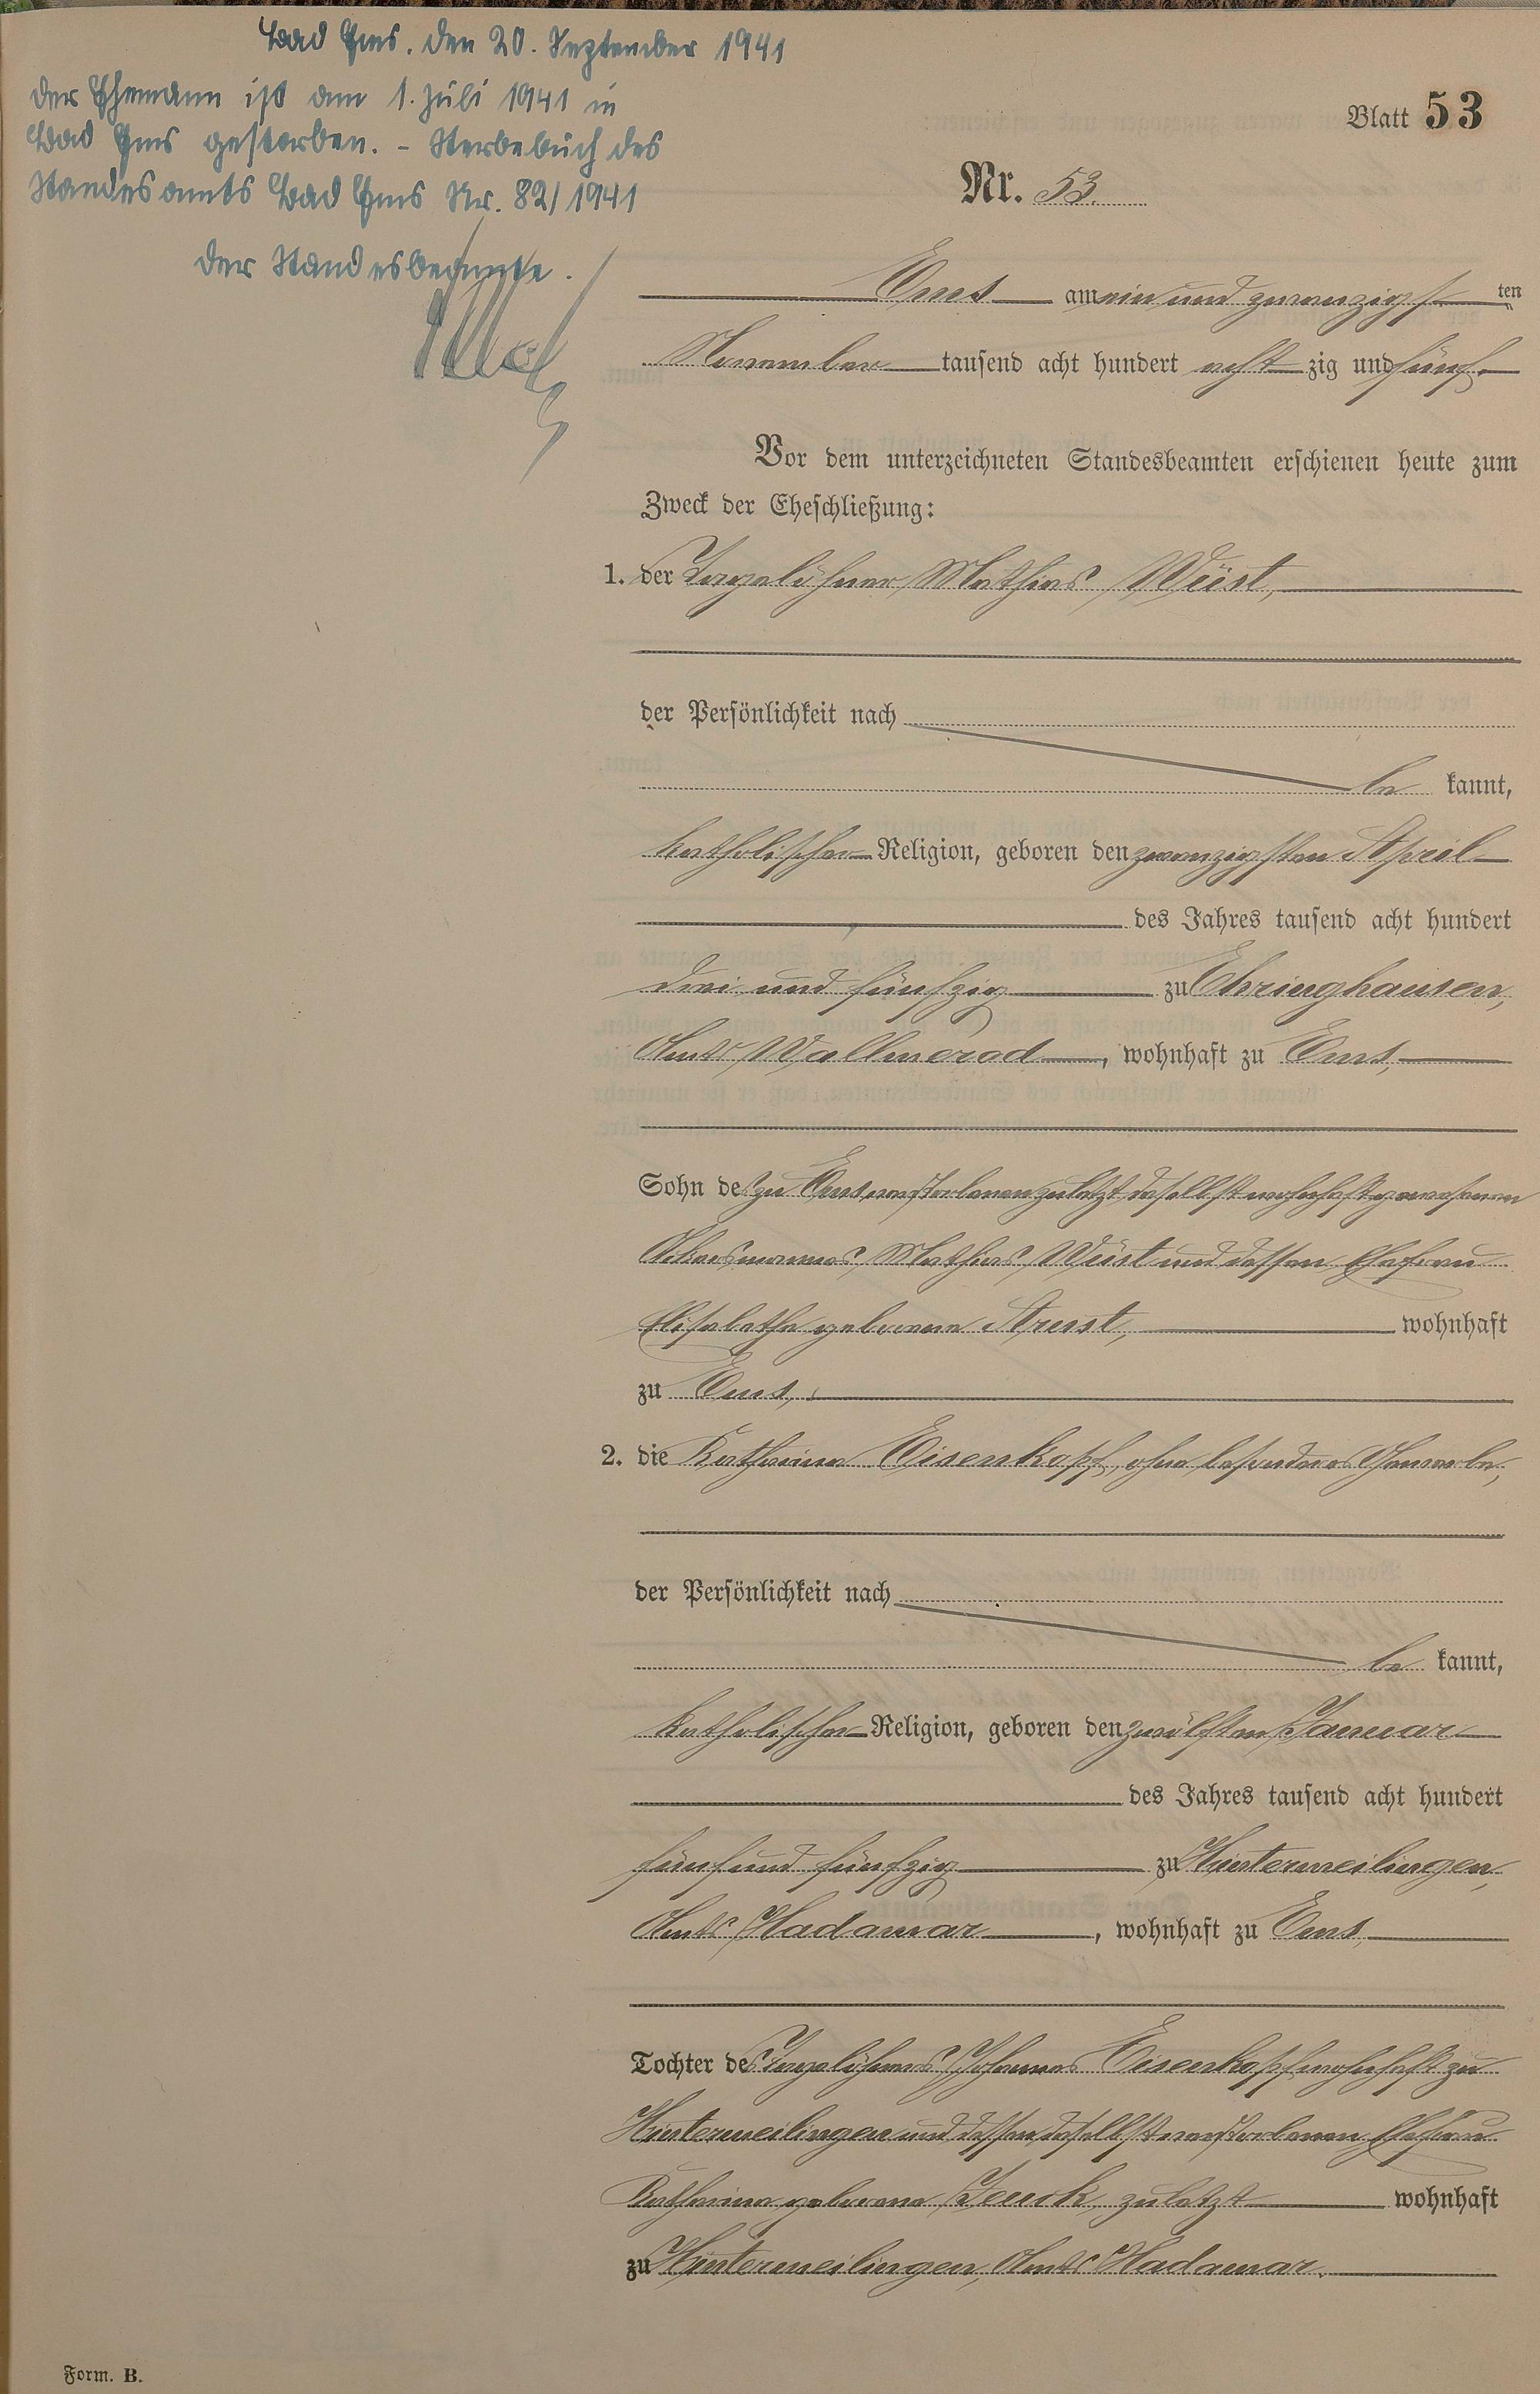 Bad Ems, den 20. September 1941
Der Ehemann ist am 1. Juli 1941 in
Bad Ems gestorben. - Sterbebuch des
Standesamts Bad Ems Nr. 82/1941
Der Standesbeamte.
Blatt 53
Nr. 53.
Ems am ein und zwanzigst ten
November tausend acht hundert acht zig und fünf.
Vor dem unterzeichneten Standesbeamten erschienen heute zum
Zweck der Eheschließung:
1. der Tagelöhner Mathias Wüst,
der Persönlichkeit nach
be kannt,
katholischer Religion, geboren den zwanzigsten April
des Jahres tausend acht hundert
drei und fünfzig zu Ehringhausen,
Amts Wallmerod, wohnhaft zu Ems,
Sohn des zu Ems verstorbenen zuletzt daselbst wohnhaft gewesenen
Ackersmannes Mathias Wüst und dessen Ehefrau
Elisabethe geborene wohnhaft
zu Ems,
2. die Katharina Eisenkopf, ohne besonderes Gewerbe,
der Persönlichkeit nach
be kannt,
katholischer Religion, geboren den zwölften Januar
des Jahres tausend acht hundert
fünf und fünfzig zu Hintermeilingen,
Amts Hadamar, wohnhaft zu Ems,
Tochter des Tagelöhners Johannes Eisenkopf wohnhaft zu
Hintermeilingen und dessen daselbst verstorbenen Ehefrau
Katharina geborene Jeuck, zuletzt wohnhaft
zu Hintermeilingen, Amts Hadamar.
Form. B.